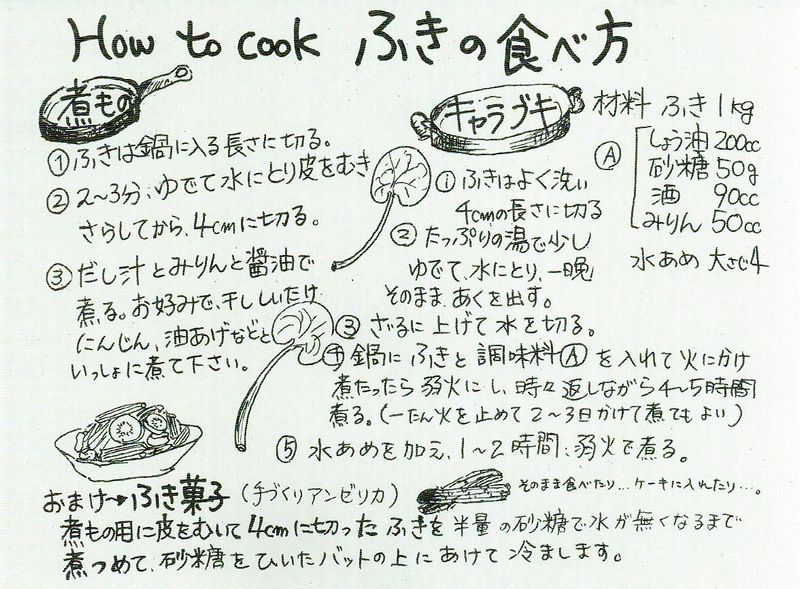 How to cook ふきの食べ方
煮もの
①ふきは鍋に入る長さに切る。
②2〜3分、ゆでて水にとり皮をむき
さらしてから、4cmに切る。
③だし汁とみりんと醤油で
煮る。お好みで、干ししいたけ
にんじん、油あげなどと
いっしょに煮て下さい。
キャラブキ
材料 ふき1kg
Ⓐ
しょう油 200cc
砂糖 50g
酒 90cc
みりん 50cc
水あめ 大さじ4
①ふきはよく洗い
4cmの長さに切る
②たっぷりの湯で少し
ゆでて、水にとり、一晩
そのまま、あくを出す。
③ざるに上げて水を切る。
④鍋にふきと調味料Ⓐを入れて火にかけ
煮たったら弱火にし、時々返しながら4〜5時間
煮る。(一たん火を止めて2〜3日かけて煮てもよい)
⑤水あめを加え、1〜2時間、弱火で煮る。
おまけ→ふき菓子(手づくりアンゼリカ)
そのまま食べたり…ケーキに入れたり…。
煮もの用に皮をむいて4cmに切ったふきを半量の砂糖で水が無くなるまで
煮つめて、砂糖をひいたバットの上にあけて冷まします。